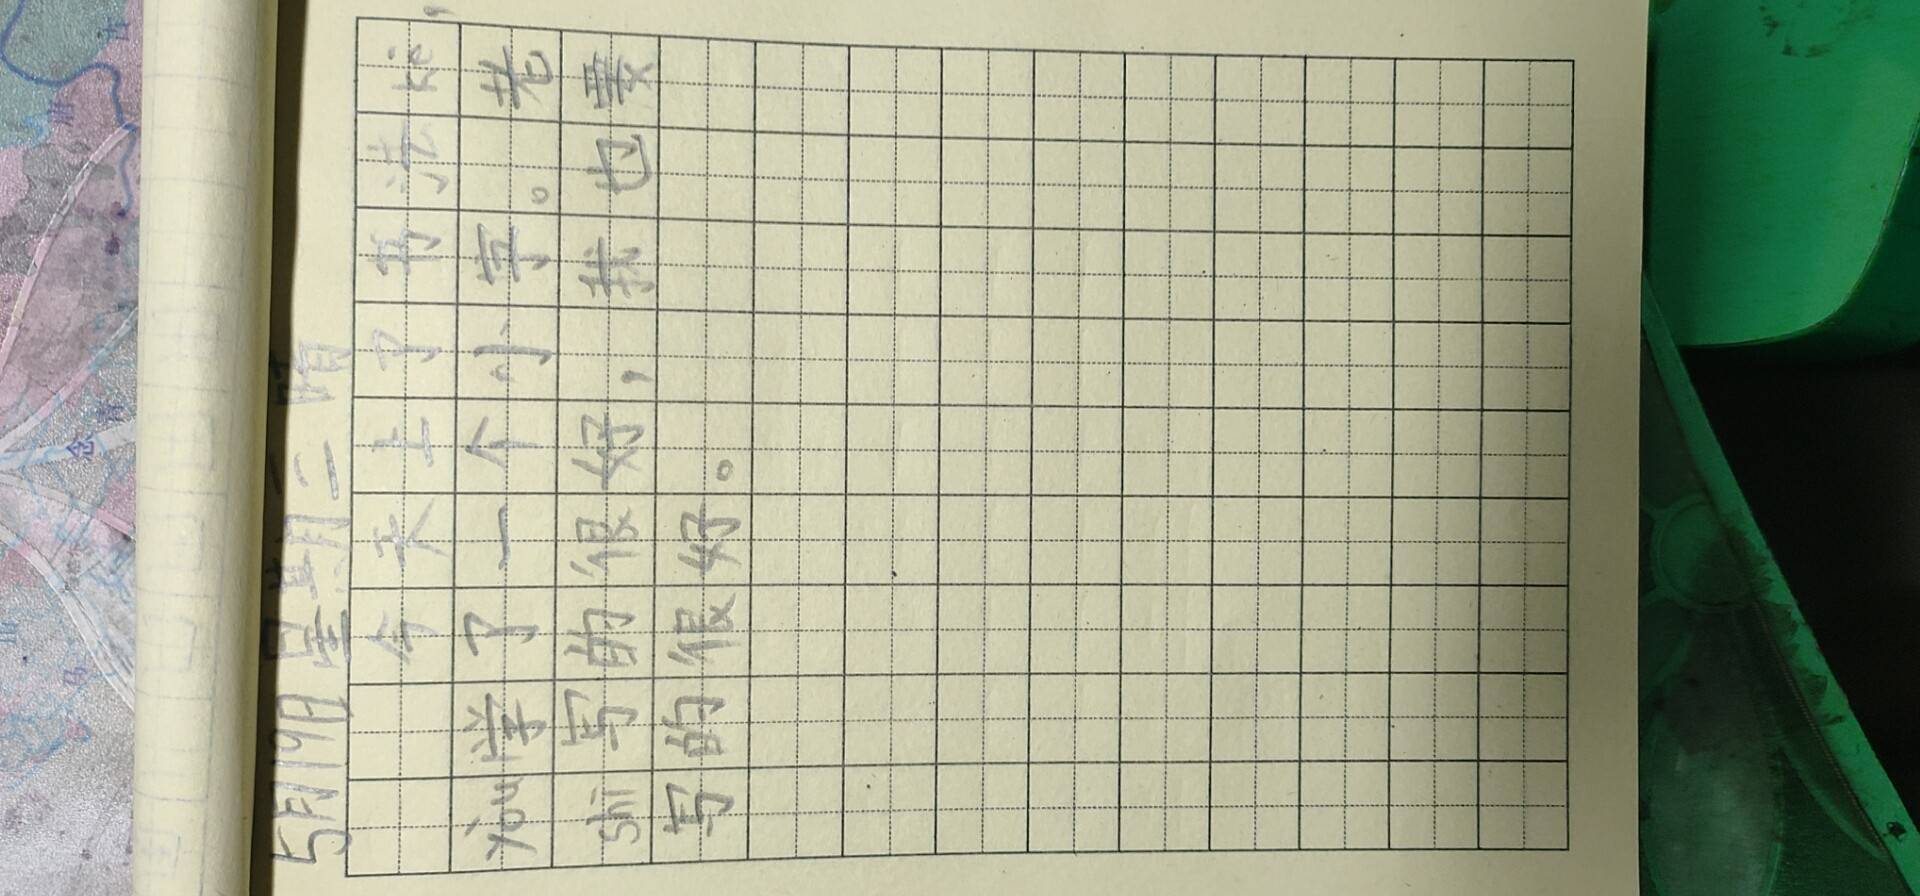 5月19日 星期二 晴
今天上了书法kè，
yòu学了一个小字。老
shi写的很好，我也要
写的很好。